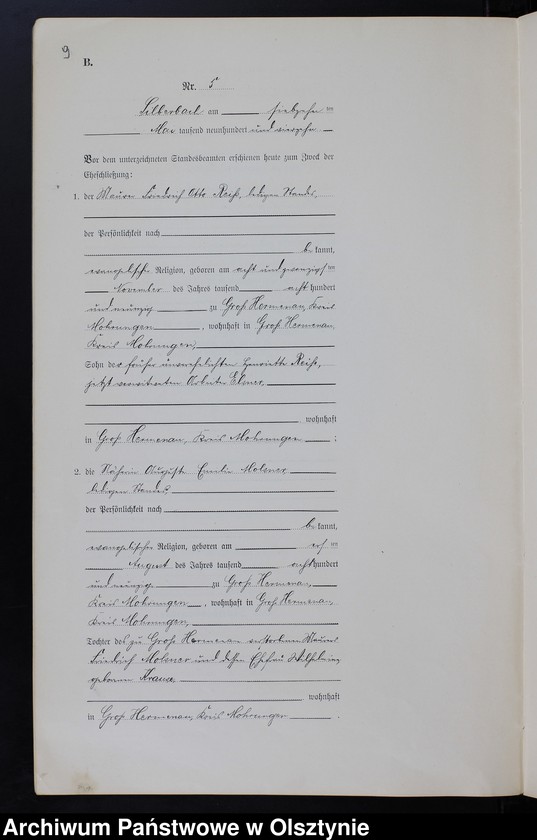 9
B.
Nr. 5
Silberbach am siebzehn ten
Mai tausend neunhundert und vierzehn
Vor dem unterzeichneten Standesbeamten erschienen heute zum Zweck der
Eheschließung:
1. der Maurer Friedrich Otto Reiß, ledigen Standes,
der Persönlichkeit nach
be kannt,
evangelischer Religion, geboren am acht und zwanzigsten
November des Jahres tausend acht hundert
und neunzig zu Groß Hermenau, Kreis
Mohrungen, wohnhaft in Groß Hermenau,
Kreis Mohrungen,
Sohn der früher unverehelichten Henriette Reiß,
jetzt verwitweten Arbeiter Elsner,
wohnhaft
in Groß Hermenau, Kreis Mohrungen;
2. die Näherin Auguste Emilie Molsner
ledigen Standes
der Persönlichkeit nach
be kannt,
evangelischer Religion, geboren am elf ten
August des Jahres tausend acht hundert
und neunzig zu Groß Hermenau,
Kreis Mohrungen, wohnhaft in Groß Hermenau,
Kreis Mohrungen,
Tochter des zu Groß Hermenau verstorbenen Maurers
Friedrich Molsner und dessen Ehefrau Wilhelmine
geborenen Krause,
wohnhaft
in Groß Hermenau, Kreis Mohrungen.
Archiwum Państwowe w Olsztynie